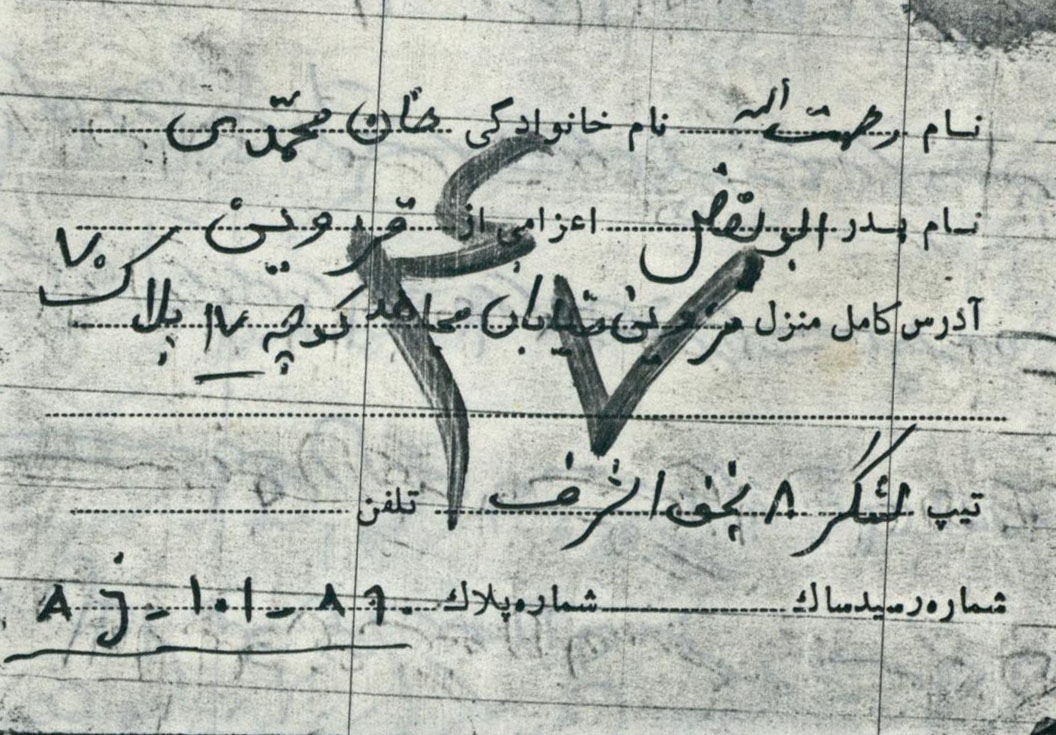 نام رحمت اله نام خانوادگی خان محمدی
نام پدر ابوالفضل اعزامی از قزوین
آدرس کامل منزل قزوین خیابان مجاهد کوچه ۱۷ پلاک ۷۰
تیپ لشگر ۸ نجف اشرف تلفن
شماره رسید ساک شماره پلاک
۲۷